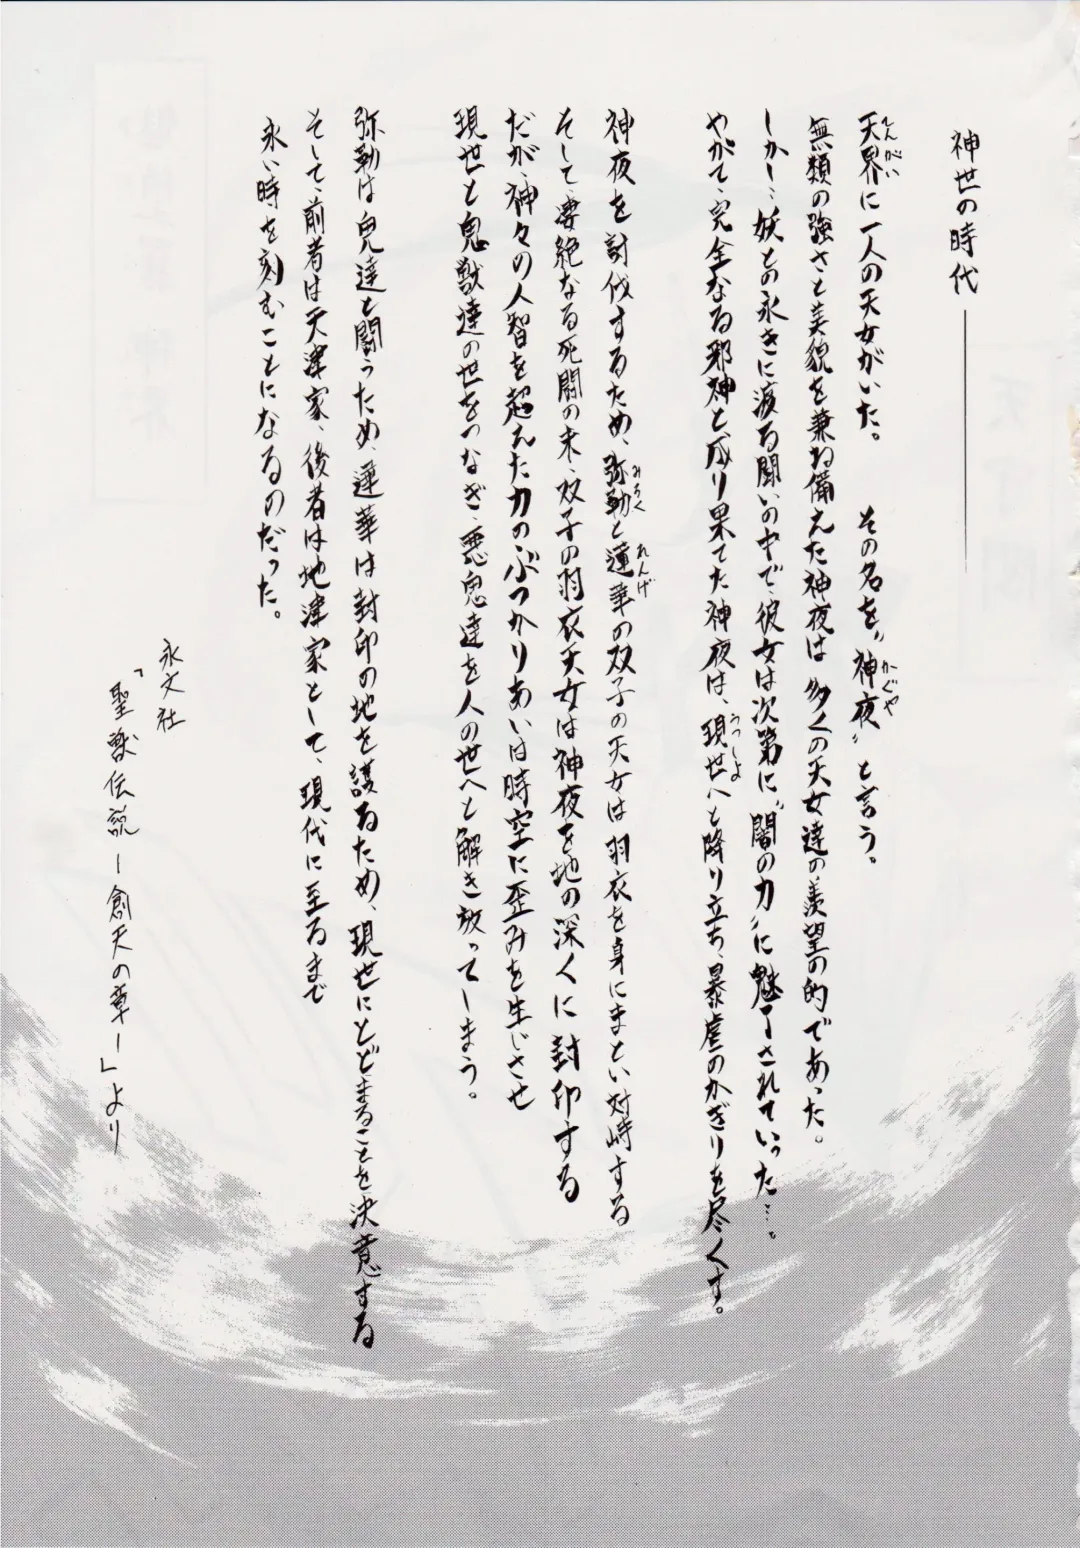 神世の時代────
天界に一人の天女がいた。　その名を〝神夜〟と言う。
無類の強さと美貌を兼ね備えた神夜は多くの天女達の羨望の的であった。
しかし…妖との永きに渡る闘いの中で、彼女は次第に〝闇の力〟に魅了されていった…。
やがて、完全なる邪神と成り果てた神夜は、現世へと降り立ち、暴虐のかぎりを尽くす。
神夜を討伐するため、弥勒と蓮華の双子の天女は羽衣を身にまとい対峙する
そして、凄絶なる死闘の末、双子の羽衣天女は神夜を地の深くに封印する
だが、神々の人智を超えた力のぶつかりあいは時空に歪みを生じさせ
現世と鬼獣達の世をつなぎ、悪鬼達を人の世へと解き放ってしまう。
弥勒は鬼達と闘うため、蓮華は封印の地を護るため、現世にとどまることを決意する
そして、前者は天津家、後者は地津家として、現代に至るまで
永い時を刻むことになるのだった。
永文社
「聖獣伝説－創天の章－」より